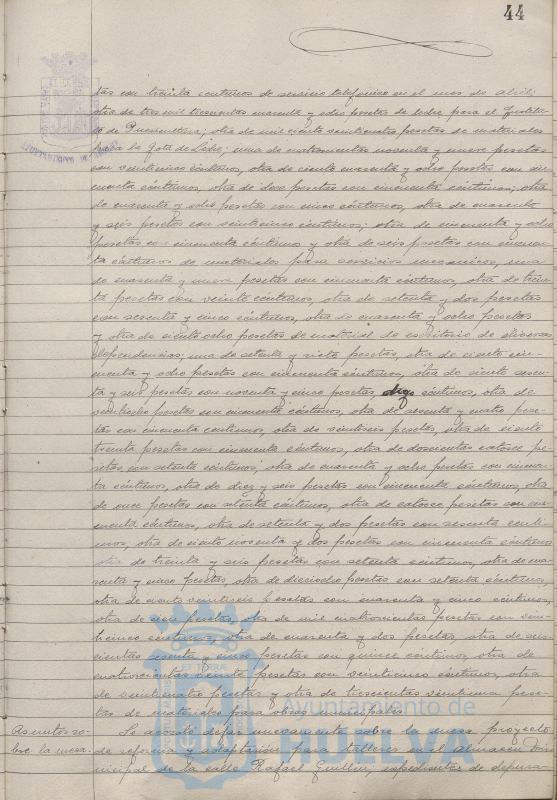 44
tas con treinta centimos de servicio telefonico en el mes de Abril;
otra de tres mil trescientas cuarenta y ocho pesetas de leche para el Instituto
de Puericultura; otra de mil ciento veinticuatro pesetas de materiales
para la Gota de Leche; una de cuatrocientas noventa y nueve pesetas
con veinticinco céntimos, otra de ciento cuarenta y ocho pesetas con cin-
cuenta céntimos, otra de dos pesetas con cincuenta céntimos; otra
de cuarenta y ocho pesetas con cinco céntimos, otra de cuarenta
y seis pesetas con veinticinco céntimos; otra de cincuenta y ocho
pesetas con cincuenta céntimos y otra de seis pesetas con cincuen-
ta céntimos de materiales para servicios mecanicos, una
de cuarenta y nueve pesetas con cincuenta céntimos, otra de trein-
ta pesetas con veinte céntimos, otra de setenta y dos pesetas
con sesenta y cinco céntimos, otra de cuarenta y ocho pesetas
y otra de ciento ocho pesetas de material de escritorio de diversas
dependencias; una de setenta y siete pesetas, otra de ciento cin-
cuenta y ocho pesetas con cincuenta céntimos, otra de ciento sesen-
ta y seis pesetas con noventa y cinco pesetas, digo céntimos, otra de
veintiocho pesetas con cincuenta céntimos, otra de sesenta y cuatro pese-
tas con cincuenta centimos, otra de veintiseis pesetas, otra de ciento
treinta pesetas con cincuenta céntimos, otra de doscientas catorce pe-
setas con setenta céntimos, otra de cuarenta y ocho pesetas con cincuen-
ta céntimos, otra de diez y seis pesetas con cincuenta céntimos, otra
de once pesetas con setenta céntimos, otra de catorce pesetas con cin-
cuenta céntimos, otra de setenta y dos pesetas con sesenta centi-
mos, otra de ciento noventa y dos pesetas con cincuenta céntimos
otra de treinta y seis pesetas con setenta céntimos, otra de cua-
renta y cinco pesetas, otra de dieciocho pesetas con setenta céntimos,
otra de ciento veintiseis pesetas con cuarenta y cinco céntimos,
otra de cien pesetas, otra de mil cuatrocientas pesetas con vein-
ticinco céntimos, otra de cuarenta y dos pesetas, otra de seis-
cientas sesenta y cinco pesetas con quince céntimos, otra de
cuatrocientas veinte pesetas con veinticinco céntimos, otra
de veinticuatro pesetas y otra de trescientas veintiuna pese-
tas de materiales para obras municipales.
Asuntos so-
bre la mesa.
Se acordó dejar nuevamente sobre la mesa, proyecto
de reforma y adaptación para talleres en el Almacen Mu-
nicipal de la calle Rafael Guillen; expedientes de depura-
Ayuntamiento de
HUELVA
ET TERRA